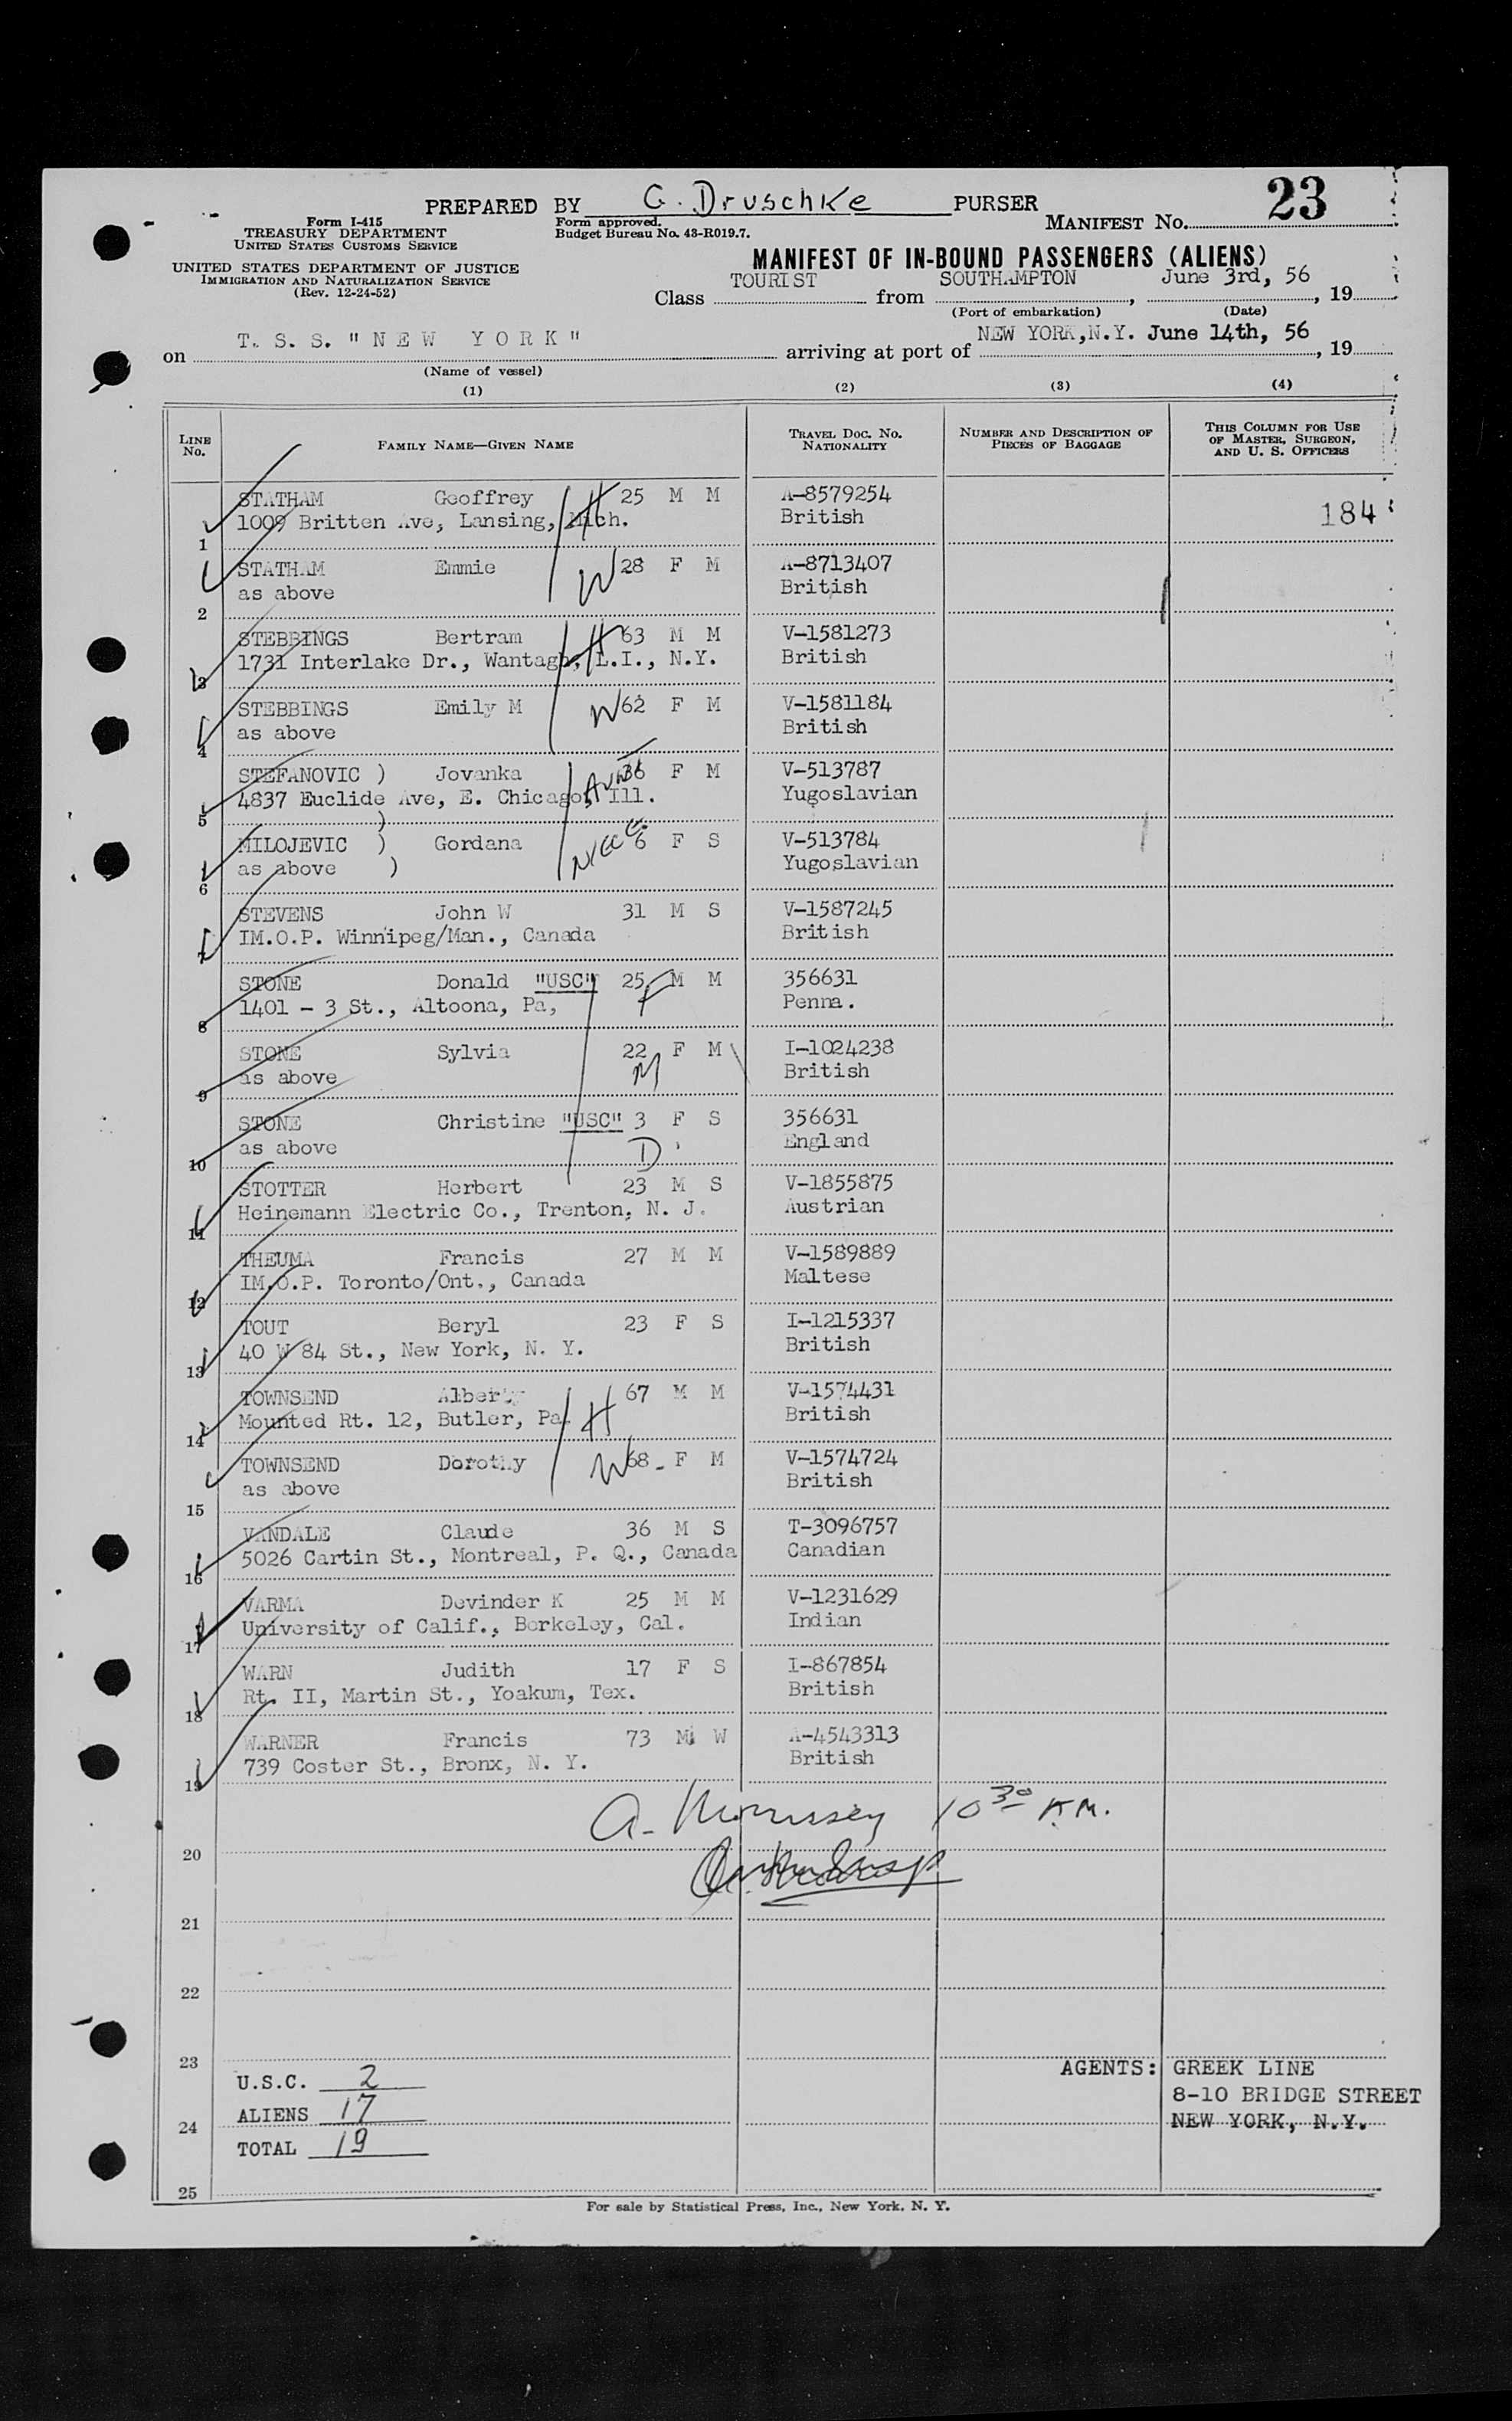 PREPARED BY G. Druschke PURSER
Form I-415
TREASURY DEPARTMENT
UNITED STATES CUSTOMS SERVICE
Form approved.
Budget Bureau No. 43-R019.7.
MANIFEST No. 23
UNITED STATES DEPARTMENT OF JUSTICE
IMMIGRATION AND NATURALIZATION SERVICE
(Rev. 12-24-52)
MANIFEST OF IN-BOUND PASSENGERS (ALIENS)
Class TOURIST from SOUTHAMPTON, June 3rd, 56, 19
(Port of embarkation) (Date)
on T. S. S. "NEW YORK" arriving at port of NEW YORK, N.Y. June 14th, 56, 19
(Name of vessel)
(1) (2) (3) (4)
LINE No. FAMILY NAME—GIVEN NAME TRAVEL DOC. No. NATIONALITY NUMBER AND DESCRIPTION OF PIECES OF BAGGAGE THIS COLUMN FOR USE OF MASTER, SURGEON, AND U. S. OFFICERS
STATHAM Geoffrey H 25 M M A-8579254
1 1009 Britten Ave, Lansing, Mich. British 184
STATHAM Emmie W 28 F M A-8713407
2 as above British
STEBBINGS Bertram H 63 M M V-1581273
3 1731 Interlake Dr., Wantagh, L.I., N.Y. British
STEBBINGS Emily M W 62 F M V-1581184
4 as above British
STEFANOVIC ) Jovanka Aunt 36 F M V-513787
5 4837 Euclide Ave, E. Chicago, Ill. Yugoslavian
)
MILOJEVIC ) Gordana NIECE 6 F S V-513784
6 as above ) Yugoslavian
STEVENS John W 31 M S V-1587245
7 IM.O.P. Winnipeg/Man., Canada British
STONE Donald "USC" 25 M M 356631
8 1401 - 3 St., Altoona, Pa, F Penna.
STONE Sylvia 22 F M I-1024238
9 as above M British
STONE Christine "USC" 3 F S 356631
10 as above D England
STOTTER Herbert 23 M S V-1855875
11 Heinemann Electric Co., Trenton, N. J. Austrian
THEUMA Francis 27 M M V-1589889
12 IM.O.P. Toronto/Ont., Canada Maltese
TOUT Beryl 23 F S I-1215337
13 40 W 84 St., New York, N. Y. British
TOWNSEND Albert 67 M M V-1574431
14 Mounted Rt. 12, Butler, Pa. H British
TOWNSEND Dorothy W 68 - F M V-1574724
15 as above British
VANDALE Claude 36 M S T-3096757
16 5026 Cartin St., Montreal, P. Q., Canada Canadian
VARMA Devinder K 25 M M V-1231629
17 University of Calif., Berkeley, Cal. Indian
WARN Judith 17 F S I-867854
18 Rt. II, Martin St., Yoakum, Tex. British
WARNER Francis 73 M W A-4543313
19 739 Coster St., Bronx, N. Y. British
A. Morrissey 10 30 A.M.
20
21
22
23
U.S.C. 2
ALIENS 17
24
TOTAL 19
25
AGENTS: GREEK LINE
8-10 BRIDGE STREET
NEW YORK, N.Y.
For sale by Statistical Press, Inc., New York, N. Y.